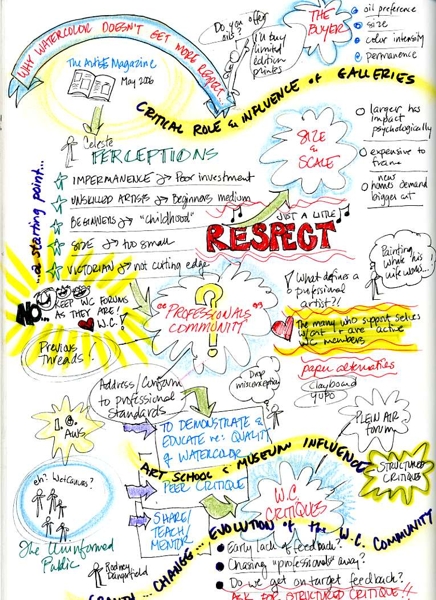 WHY WATERCOLOR DOESN'T GET MORE RESPECT...
Do you offer
oils?
I'll buy
limited
edition
prints
THE
BUYER
oil preference
size
color intensity
permanence
The Artist's Magazine
May 2006
CRITICAL ROLE & INFLUENCE of GALLERIES
Celeste
PERCEPTIONS
...a starting point...
IMPERMANENCE → Poor investment
UNSKILLED ARTISTS → Beginners medium
BEGINNERS → "childhood"
SIZE → too small
VICTORIAN → not cutting edge
SIZE
&
SCALE
larger has
impact
psychologically
expensive to
frame
new
homes demand
bigger art
JUST A LITTLE
RESPECT
NO...
KEEP WC FORUMS
AS THEY ARE!
W.C.!
Previous
Threads!
"PROFESSIONALS
COMMUNITY"
?
What defines a
professional
artist?!
Painting
while his
wife works...
The many who support selves
w/art & are active
WC members
paper alternatives
clayboard
YUPO
Address/Conform
to professional
Standards
Drop
misconception
AWS
TO DEMONSTRATE &
EDUCATE re: QUALITY
of WATERCOLOR
PLEIN AIR
forum
ART SCHOOL & MUSEUM INFLUENCE
STRUCTURED
CRITIQUES
eh? WetCanvas?
PEER CRITIQUE
W.C.
CRITIQUES
SHARE/
TEACH/
MENTOR
The Uninformed
Public
Rodney
Dangerfield
GROWTH... CHANGE... EVOLUTION of the W.C. COMMUNITY
Early lack of feedback?
Chasing "professionals" away?
Do we get on target feedback?
ASK FOR STRUCTURED CRITIQUE!!